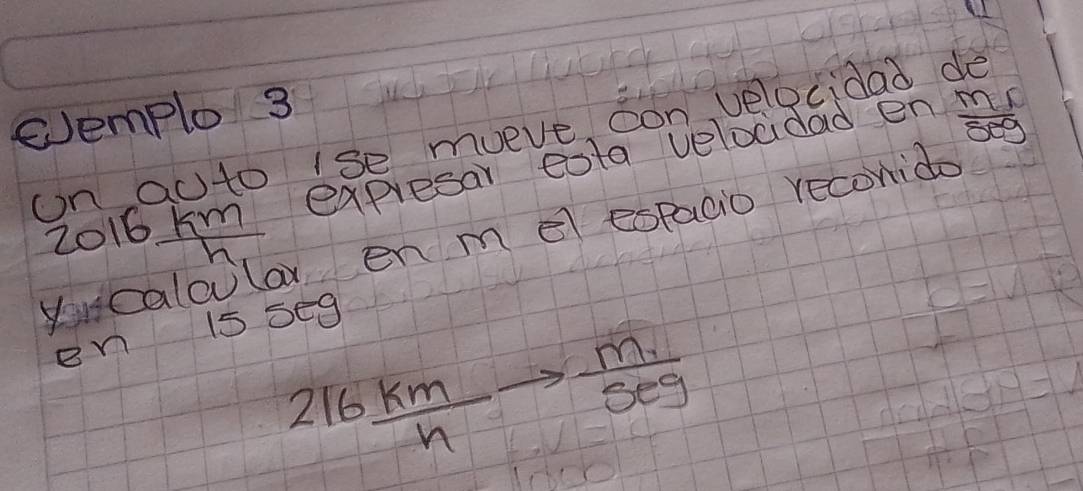 Ejemplo 3
Un auto se mueve con velocidad de
2016 km/h expresar esta velocidad en m/seg
y calcular en m el espacio recorrido
en 15 seg
216 km/h → m/seg